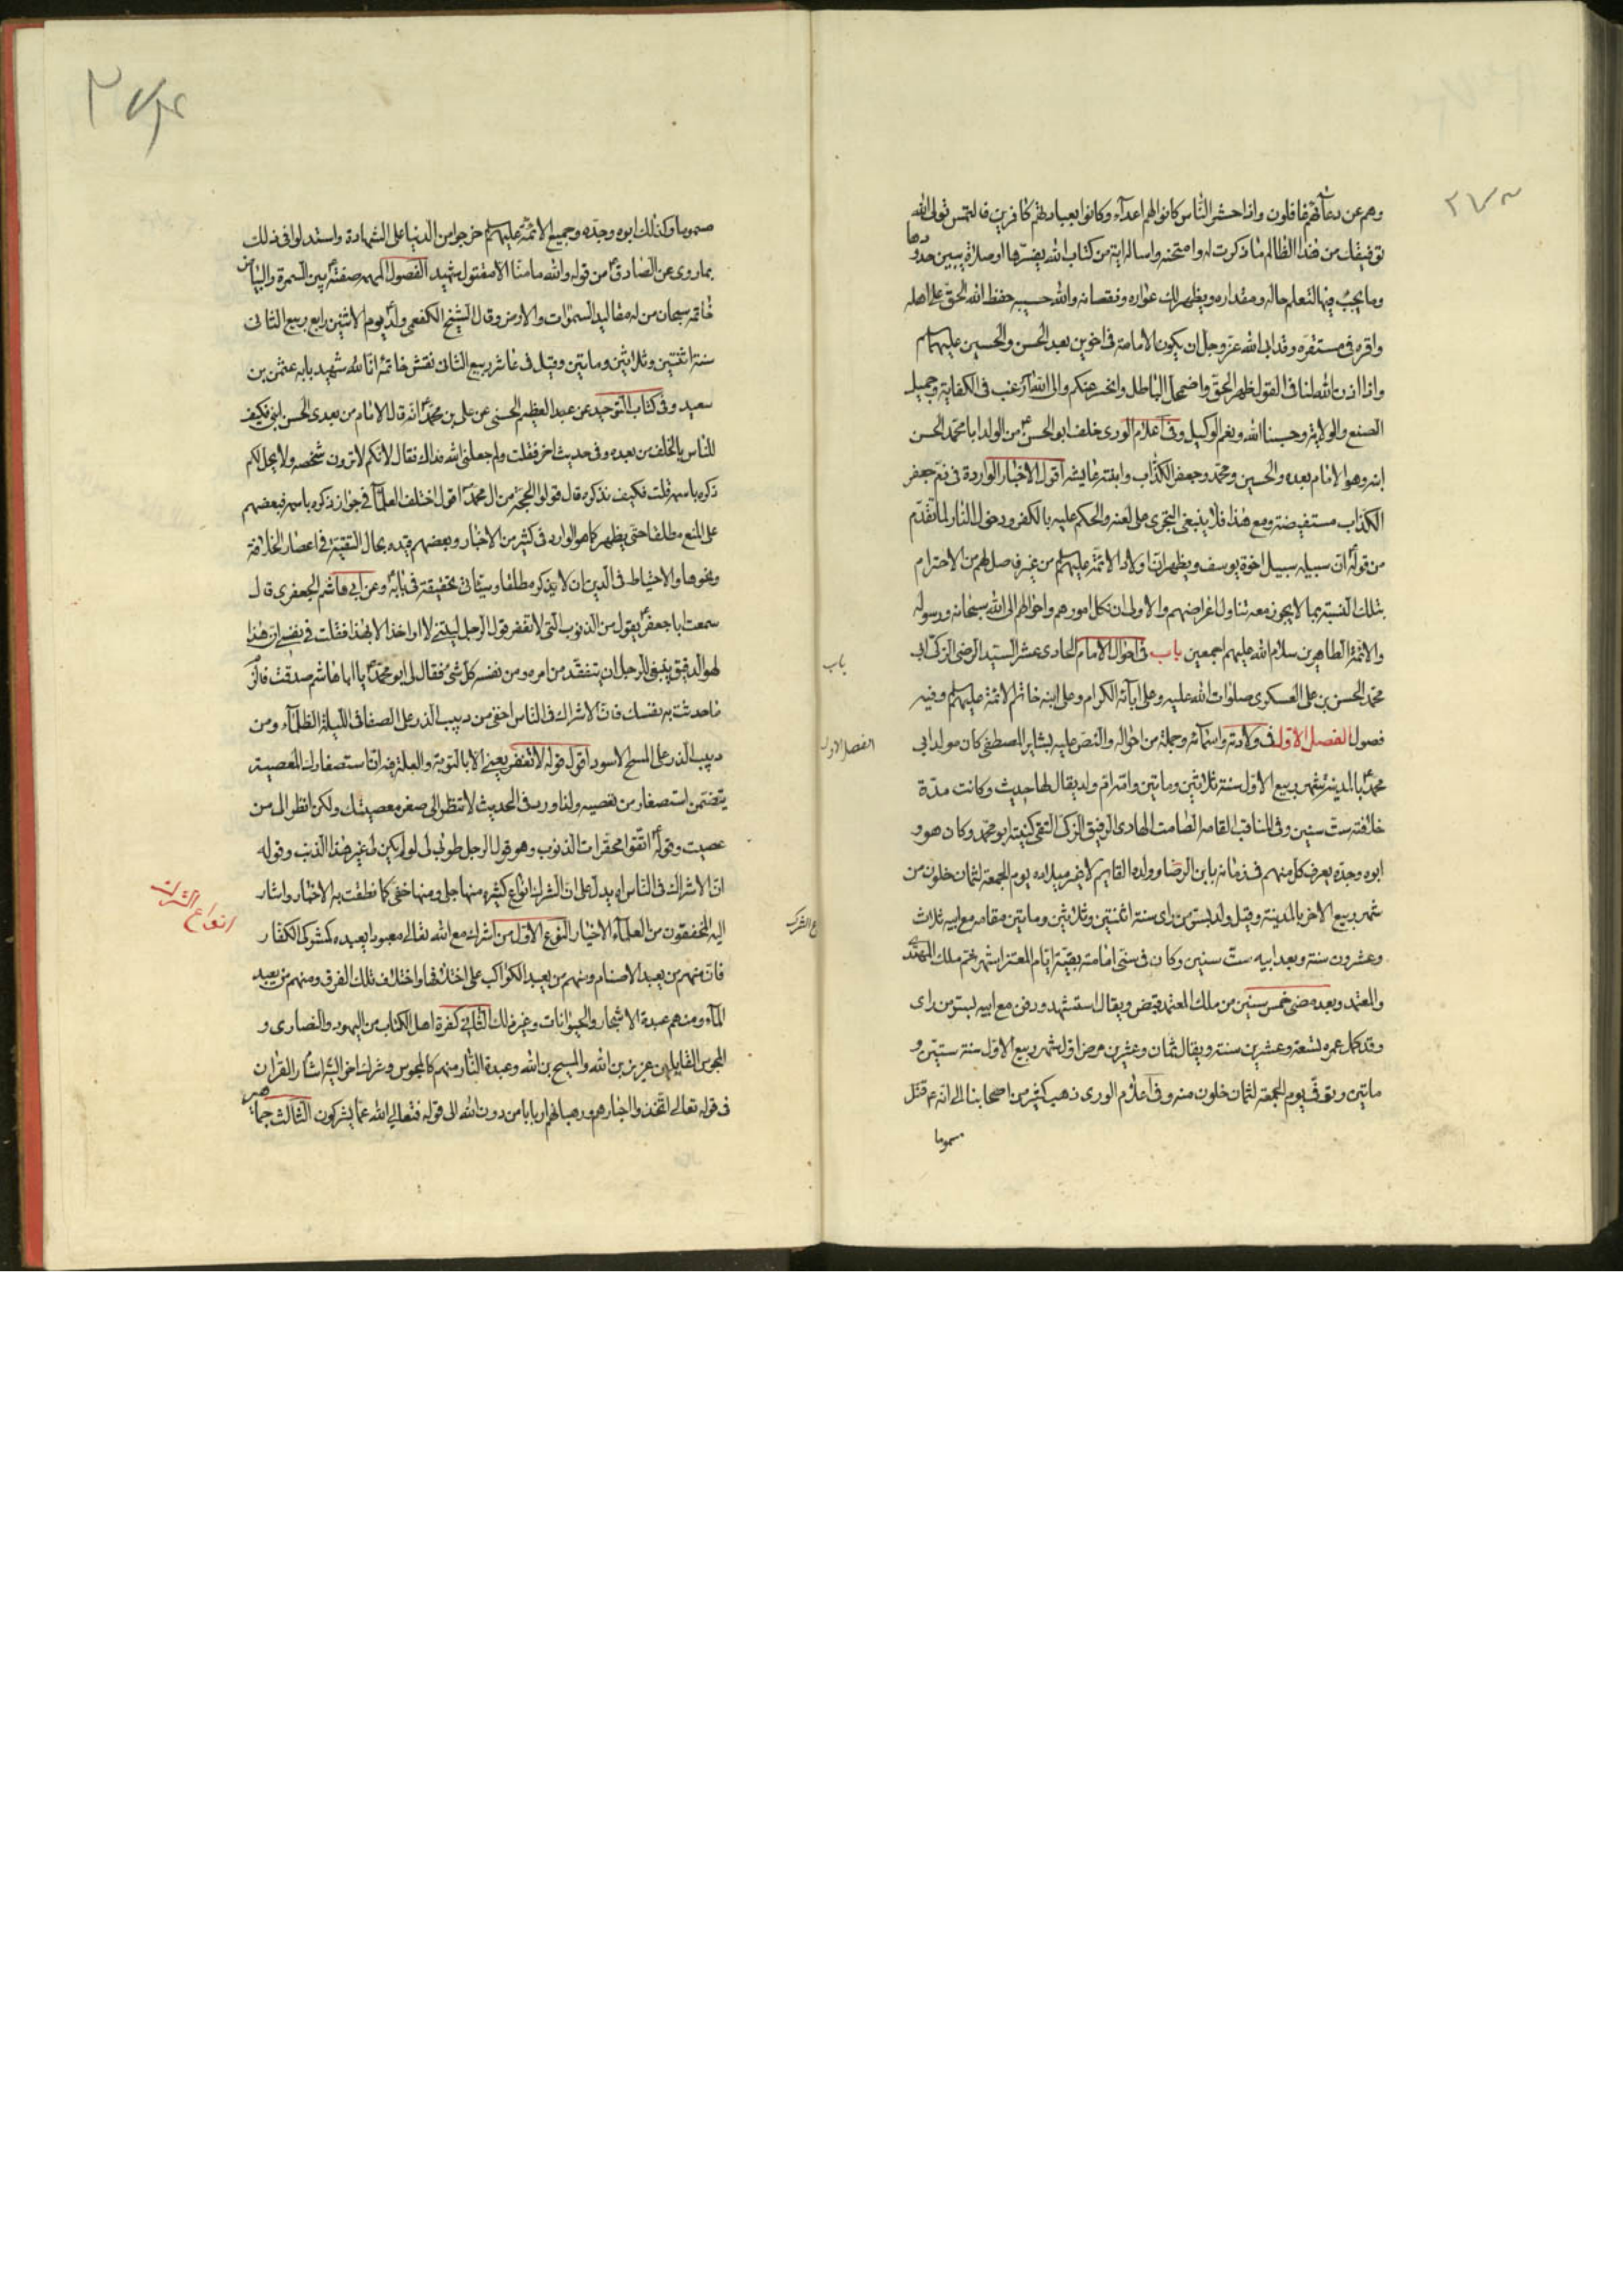 ٢٧٣
وهم عن دعائهم غافلون واذا حشر الناس كانوا لهم اعدآء وكانوا بعبادتهم كافرين فالتمس تولى الله
توفيقك من هذا الظالم ما ذكرت له وامتحنه واساله اية من كتاب الله يفسرها او صلاة يبين حدودها
وما يجب فيها لتعلم حاله ومقداره ويظهر لك عواره ونقصانه والله حسيبه حفظ الله الحق على اهله
واقره في مستقره وقد ابى الله عز وجل ان يكون الامامة في اخوين بعد الحسن والحسين عليهما السلام
واذا اذن الله لنا في القول ظهر الحق واضمحل الباطل وانحسر عنكم والى الله ارغب في الكفاية وجميل
الصنع والولاية وحسبنا الله ونعم الوكيل وفى اعلام الورى خلف ابو الحسن ع من الولد ابا محمد الحسن
ابنه وهو الامام بعده والحسين ومحمد وجعفر الكذاب وابنته عايشه اقول الاخبار الواردة في ذم جعفر
الكذاب مستفيضة ومع هذا فلا ينبغى التجرى على لعنه والحكم عليه بالكفر ودخول النار لما تقدم
من قوله ان سبيله سبيل اخوة يوسف ويظهر ان اولاد الائمة عليهم السلام من غير فاصل لهم من الاحترام
بتلك النسبة بما لا يجوز معه تناول اغراضهم والاولى ان نكل امورهم واحوالهم الى الله سبحانه ورسوله
والائمة الطاهرين سلام الله عليهم اجمعين باب في احوال الامام الحادى عشر السيد الرضى الزكى ابى
محمد الحسن بن على العسكرى صلوات الله عليه وعلى آبآئه الكرام وعلى ابنه خاتم الائمة عليهم السلام وفيه
فصول الفصل الاول في ولادته واسمآئه وجملة من احواله والنص عليه بشاير المصطفى كان مولد ابى
محمد ع بالمدينة شهر ربيع الاول سنة ثلاثين ومايتين وامه ام ولد يقال لها حديث وكانت مدة
خلافته ست سنين وفى المناقب القابه الصامت الهادى الرفيق الزكى التقى كنيته ابو محمد وكان هو و
ابوه وجده يعرف كل منهم في زمانه بابن الرضا وولده القايم لا غير ميلاده يوم الجمعة لثمان خلون من
شهر ربيع الاخر بالمدينة وقيل ولد بسر من راى سنة اثنتين وثلاثين ومايتين مقامه مع ابيه ثلاث
وعشرون سنة وبعد ابيه ست سنين وكان في سنى امامته بقية ايام المعتز اشهر ثم ملك المهتدى
والمعتمد وبعد مضى خمس سنين من ملك المعتمد قبض ويقال استشهد ودفن مع ابيه بسر من راى
وقد كمل عمره تسعة وعشرين سنة ويقال ثمان وعشرين مرض اول شهر ربيع الاول سنة ستين و
مايتين وتوفى يوم الجمعة لثمان خلون منه وفى اعلام الورى ذهب كثير من اصحابنا الى انه ع قتل
مسموما
باب
الفصل الاول
مسموما وكذلك ابوه وجده وجميع الائمة عليهم السلام خرجوا من الدنيا على الشهادة واستدلوا في ذلك
بما روى عن الصادق ع من قوله والله ما منا الا مقتول شهيد الفصول المهمه صفته ع بين السمرة والبياض
خاتمه سبحان من له مقاليد السموات والارض وقال الشيخ الكفعمى ولد ع يوم الاثنين رابع ربيع الثانى
سنة اثنتين وثلاثين ومايتين وقيل في عاشر ربيع الثانى نقش خاتمه انا لله شهيد بابه عثمن بن
سعيد وفى كتاب التوحيد عن عبد العظيم الحسنى عن على بن محمد ع انه قال الامام من بعدى الحسن ابنى فكيف
للناس بالخلف من بعده وفى حديث اخر فقلت ولم جعلنى الله فداك فقال لانكم لا ترون شخصه ولا يحل لكم
ذكره باسمه قلت فكيف نذكره قال قولوا الحجة من ال محمد ع اقول اختلف العلمآء في جواز ذكره باسمه فبعضهم
على المنع مطلقا حتى يظهر كما هو الوارد في كثير من الاخبار وبعضهم قيده بحال التقية في اعصار الخلافة
ونحوها والاحتياط في الدين ان لا يذكره مطلقا وسيأتى تحقيقه في بابه وعن ابى هاشم الجعفرى قال
سمعت ابا جعفر ع يقول من الذنوب التى لا تغفر قول الرجل ليتنى لا اواخذ الا بهذا فقلت في نفسى ان هذا
لهو الدقيق ينبغى للرجل ان يتفقد من امره ومن نفسه كل شئ فقال لى ابو محمد ع يا ابا هاشم صدقت فالزم
ما حدثت به نفسك فان الاشراك في الناس اخفى من دبيب الذر على الصفا في الليلة الظلمآء ومن
دبيب الذر على المسح الاسود اقول قوله لا تغفر يعنى الا بالتوبة والعلة فيه انّ استصغارك المعصية
يتضمن استصغار من تعصيه ولذا ورد في الحديث لا تنظر الى صغر معصيتك ولكن انظر الى من
عصيت وقوله ع اتقوا محقرات الذنوب وهو قول الرجل طوبى لى لو لم يكن لى غير هذا الذنب وقوله
ان الاشراك في الناس اه يدل على ان الشرك انواع كثيره منها جلى ومنها خفى كما نطقت به الاخبار واشار
اليه المحققون من العلمآء الاخيار النوع الاول من اشرك مع الله تعالى معبودا يعبده كمشركى الكفار
فان منهم من يعبد الاصنام ومنهم من يعبد الكواكب على اختلافها واختلاف تلك الفرق ومنهم من يعبد
المآء ومنهم عبدة الاشجار والحيوانات وغير ذلك الثانى كفرة اهل الكتاب من اليهود والنصارى و
المجوس القايلين عزير بن الله والمسيح بن الله وعبدة النار منهم كالمجوس وشرك اخر اليه اشار القران
في قوله تعالى اتخذوا احبارهم ورهبانهم اربابا من دون الله الى قوله فتعالى الله عما يشركون الثالث جماعة
انواع الشرك